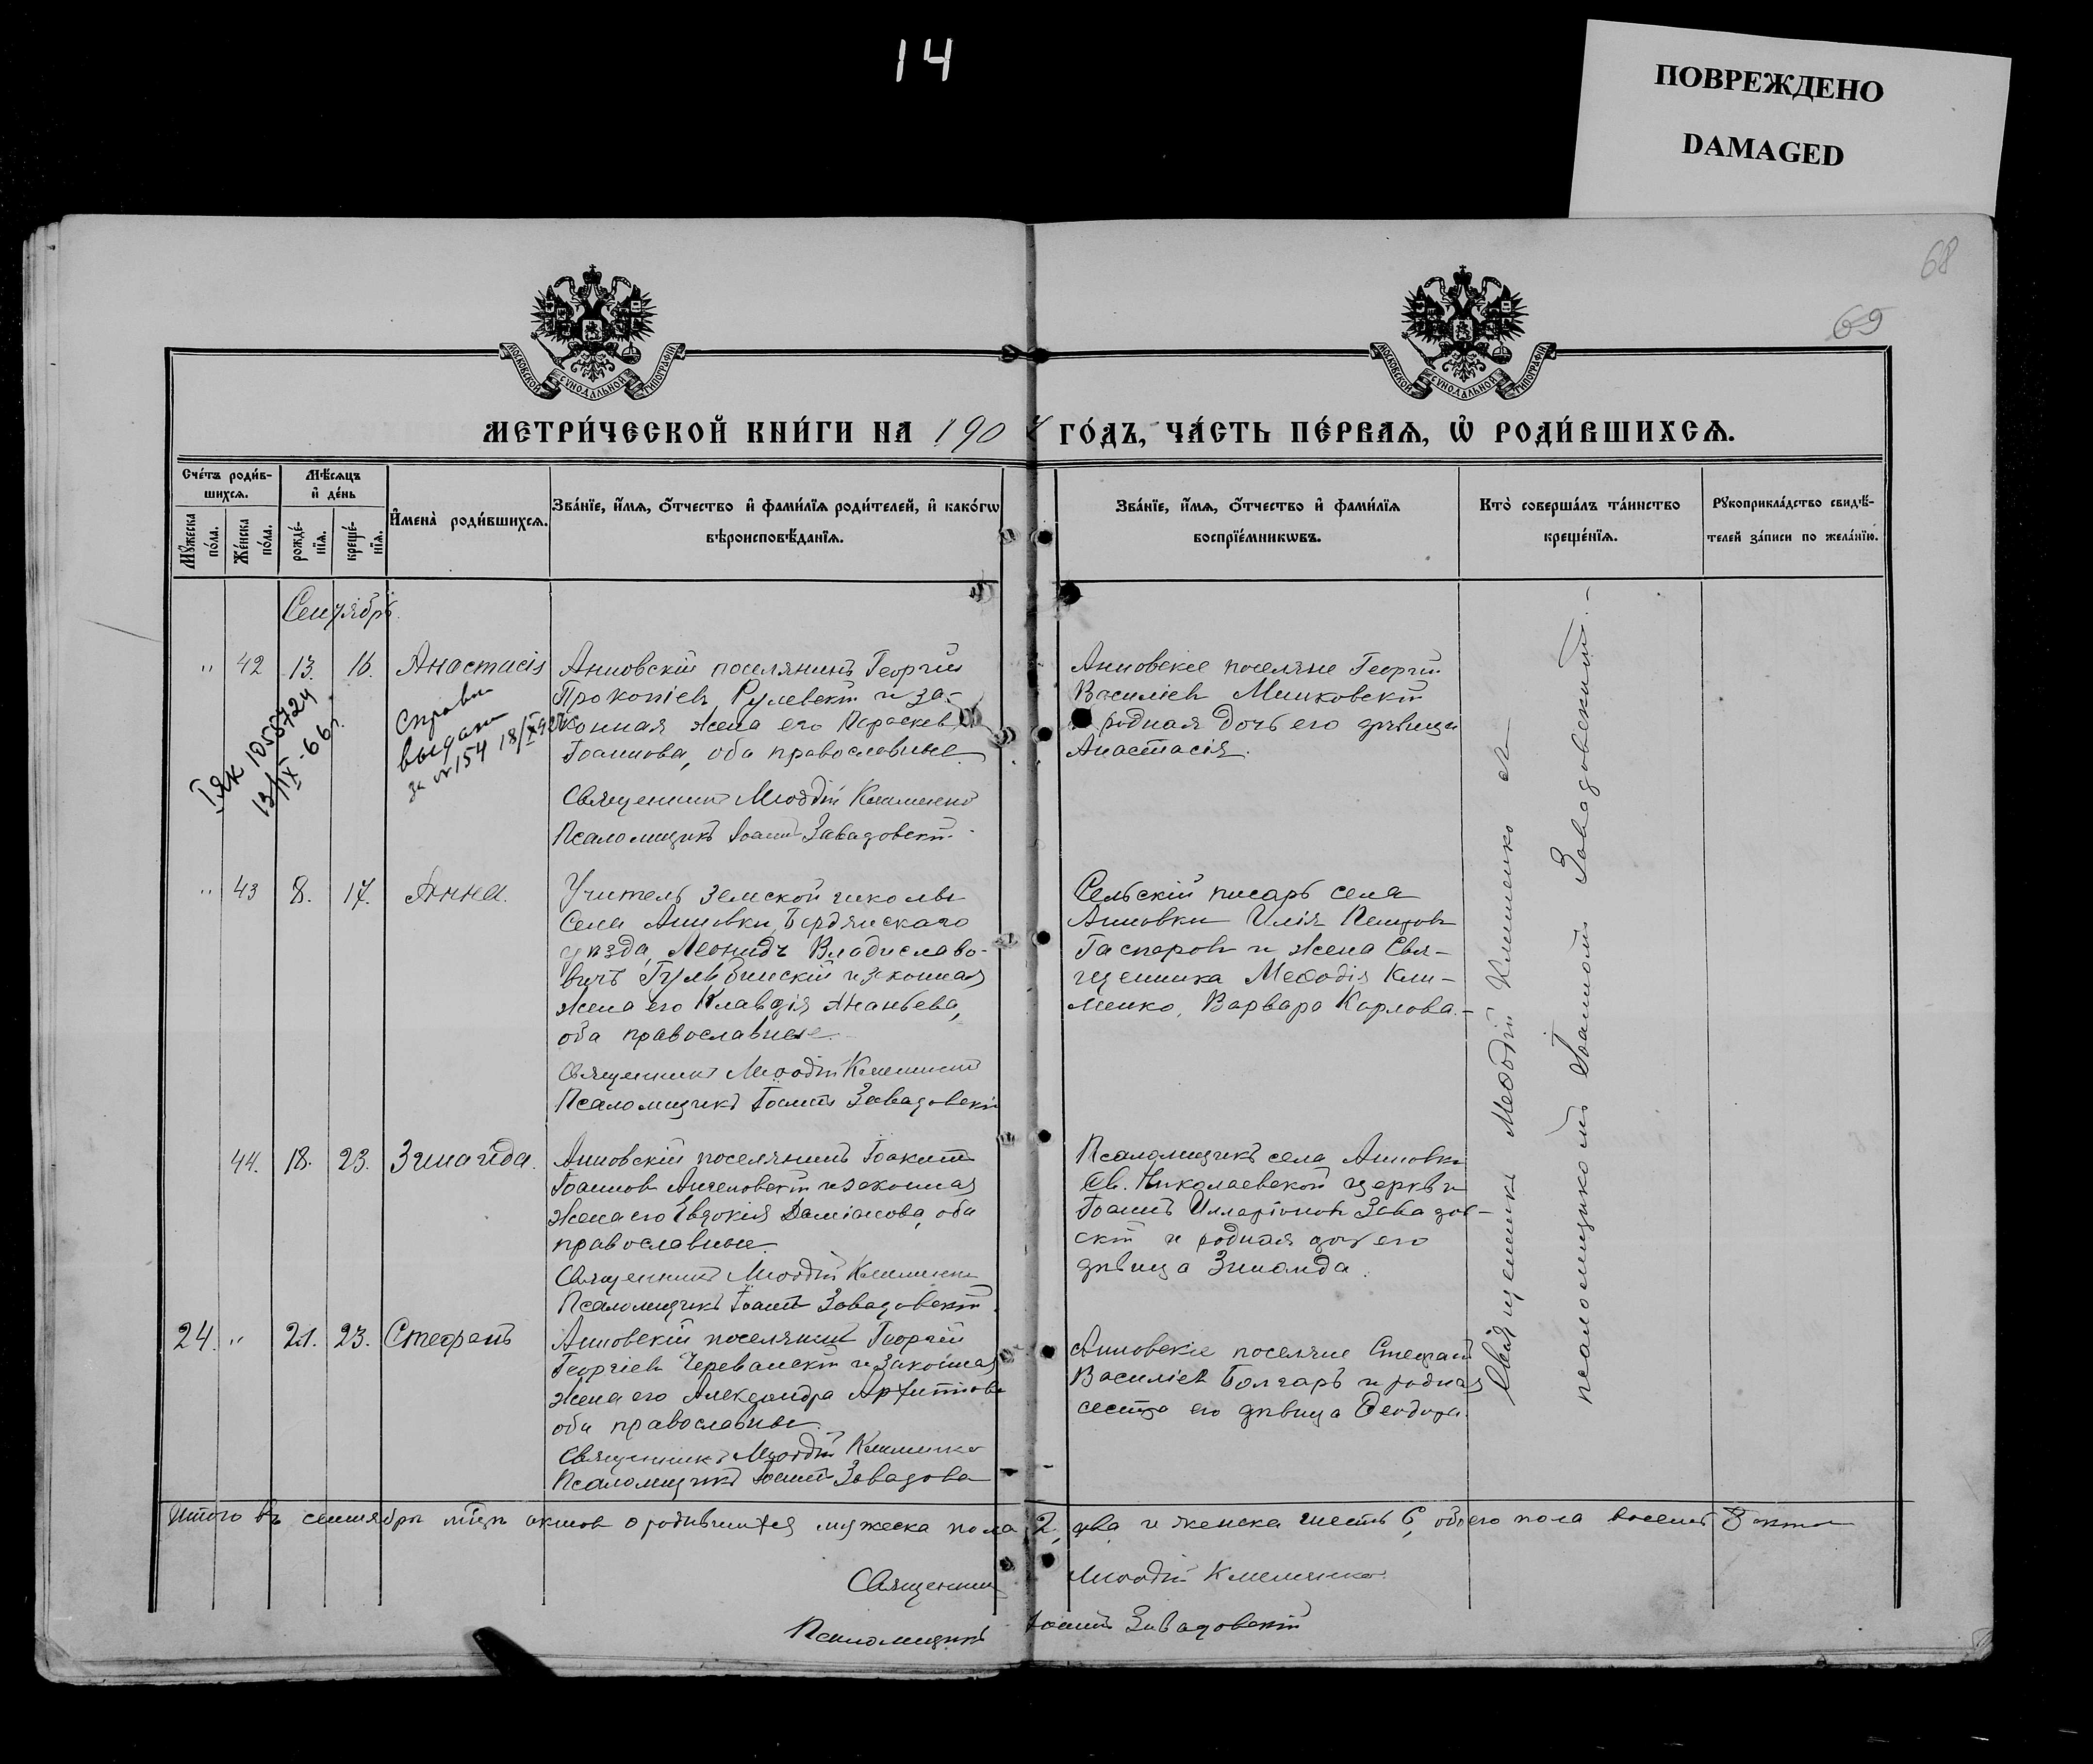 14
ПОВРЕЖДЕНО
DAMAGED
68
69
МОСКОВСКОЙ СУНОДАЛЬНОЙ ТИПОГРАФІИ
МОСКОВСКОЙ СУНОДАЛЬНОЙ ТИПОГРАФІИ
МЕТРИ́ЧЕСКОЙ КНИ́ГИ НА 190 ГО́ДЪ, ЧА́СТЬ ПЕ́РВАЯ, Ѡ҆ РОДИ́ВШИХСЯ.
Сче́тъ роди́в-
шихся.
Мѣ́сяцъ
и҆ де́нь
Мꙋ́жеска
по́ла.
Же́нска
по́ла.
рожде́-
нїя.
креще́-
нїя.
И҆мена̀ роди́вшихся.
Зва́нїе, и҆́мя, ѻ҆́тчество и҆ фами́лїя роди́телей, и҆ како́гѡ
вѣроисповѣ́данїя.
Зва́нїе, и҆́мя, ѻ҆́тчество и҆ фами́лїя
воспрїе́мникѡвъ.
Кто̀ соверша́лъ та́инство
креще́нїя.
Рꙋкоприкла́дство свидѣ́-
телей за́писи по жела́нїю.
Сентябрь.
" 42 13. 16. Анастасія
Анновскій поселянинъ Георгій
Прокопіевъ Рулевскій и за-
конная жена его Параскева
Іоаннова, оба православные.
Священникъ Меѳодій Клименко
Псаломщикъ Іоаннъ Завадовскій
Анновскіе поселяне Георгій
Василіевъ Мишковскій
и родная дочь его дѣвица
Анастасія.
Справка
выдана
за № 154 18/X
ІЯК 1058724
13/IX-66г.
" 43 8. 17. Анна.
Учитель земской школы
села Анновки, Бердянскаго
уѣзда, Леонидъ Владиславо-
вичъ Гульбинскій и законная
жена его Клавдія Ананьева,
оба православные.
Священникъ Меѳодій Клименко
Псаломщикъ Іоаннъ Завадовскій
Сельскій писарь села
Анновки Илія
Гаспаровъ и жена Свя-
щенника Меѳодія Кли-
менко, Варвара Карлова.-
44. 18. 23. Зинаида.
Анновскій поселянинъ Іоакимъ
Іоанновъ и законная
жена его Евдокія Даміанова, оба
православные.
Священникъ Меѳодій Клименко
Псаломщикъ Іоаннъ Завадовскій.
Псаломщикъ села Анновки
Св. Николаевской церкви
Іоаннъ Илларіоновъ Завадов-
скій и родная дочь его
дѣвица Зинаида.
24. " 21. 23. Стефанъ
Анновскій поселянинъ Георгій
Георгіевъ и законная
жена его Александра Архиппова
оба православные.
Священникъ Меѳодій Клименко
Псаломщикъ Іоаннъ Завадовс
Анновскіе поселяне Стефанъ
Василіевъ Болгаръ и родная
сестра его дѣвица Ѳеодора.
Священникъ Меѳодій Клименко съ
псаломщикомъ Іоанномъ Завадовскимъ.-
Итого въ сентябрѣ мѣсяцѣ актовъ о родившихся мужеска пола 2, два и женска шесть 6, обоего пола восемь 8 актовъ
Священникъ Меѳодій Клименко
Псаломщикъ Іоаннъ Завадовскій